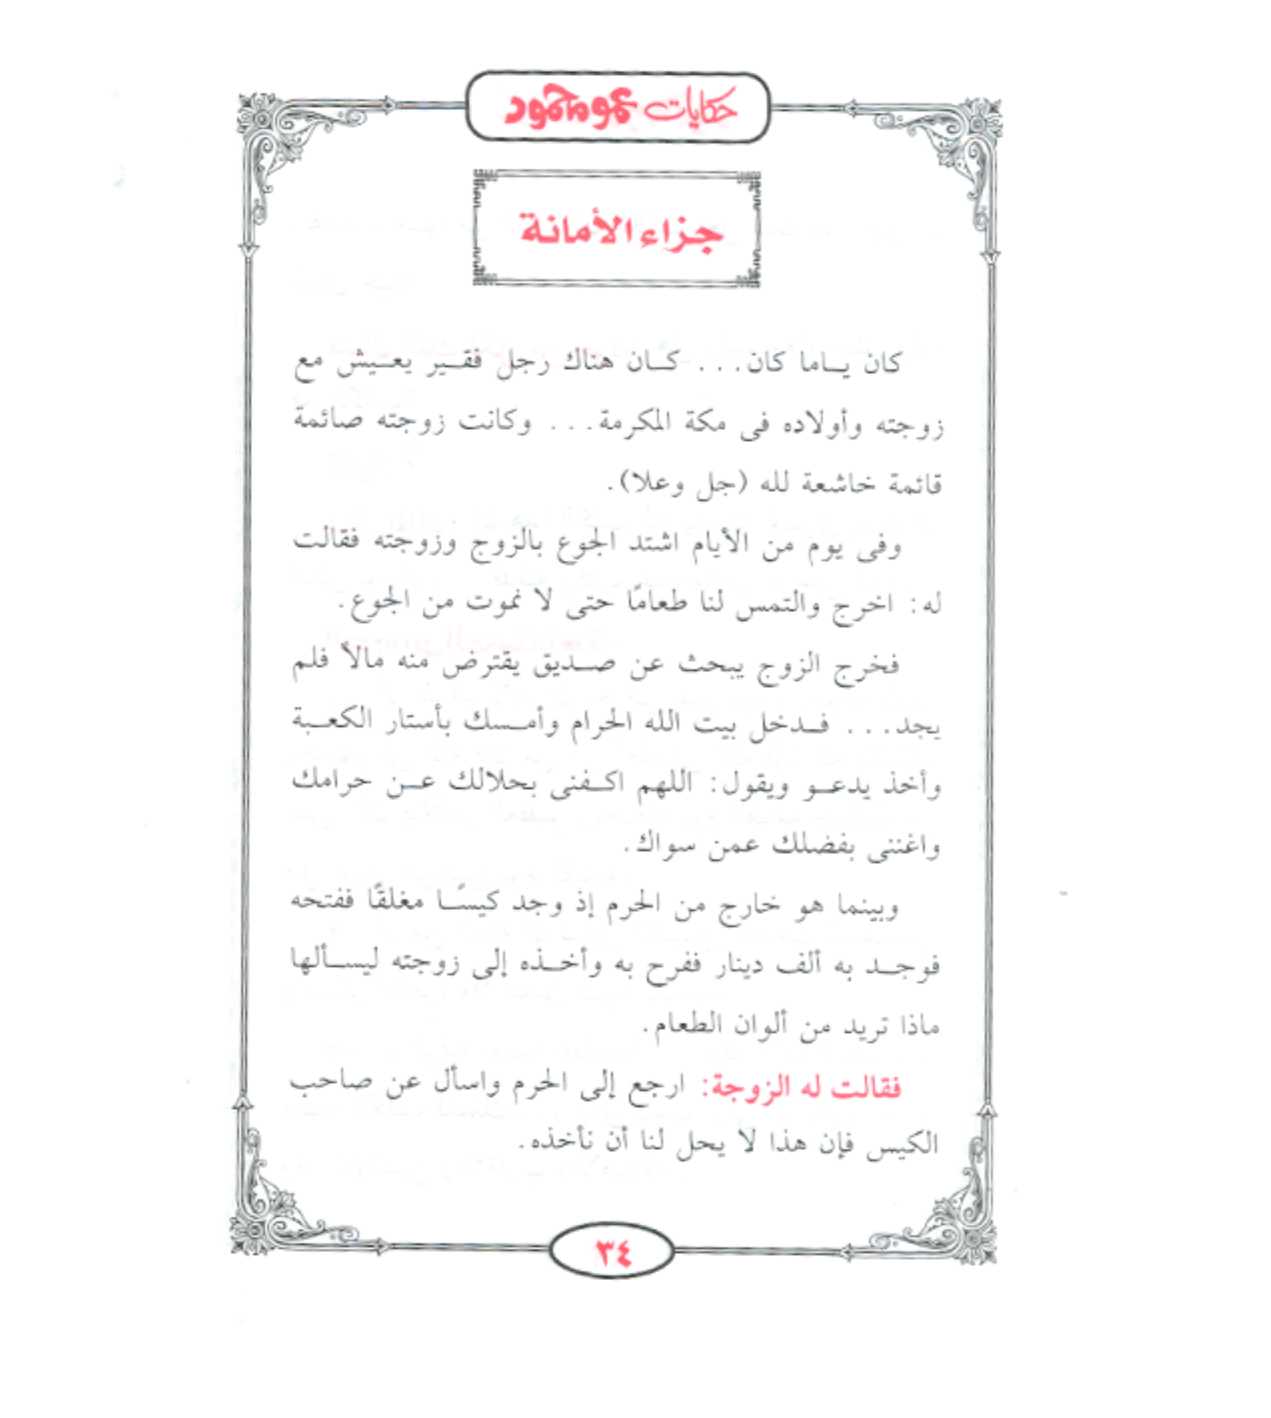 حكايات عمو محمود
جزاء الأمانة
كان ياما كان... كان هناك رجل فقير يعيش مع
زوجته وأولاده فى مكة المكرمة... وكانت زوجته صائمة
قائمة خاشعة لله (جل وعلا).
وفى يوم من الأيام اشتد الجوع بالزوج وزوجته فقالت
له: اخرج والتمس لنا طعامًا حتى لا نموت من الجوع.
فخرج الزوج يبحث عن صديق يقترض منه مالاً فلم
يجد... فدخل بيت الله الحرام وأمسك بأستار الكعبة
وأخذ يدعو ويقول: اللهم اكفنى بحلالك عن حرامك
واغننى بفضلك عمن سواك.
وبينما هو خارج من الحرم إذ وجد كيسًا مغلقًا ففتحه
فوجد به ألف دينار ففرح به وأخذه إلى زوجته ليسألها
ماذا تريد من ألوان الطعام.
فقالت له الزوجة: ارجع إلى الحرم واسأل عن صاحب
الكيس فإن هذا لا يحل لنا أن نأخذه.
٣٤